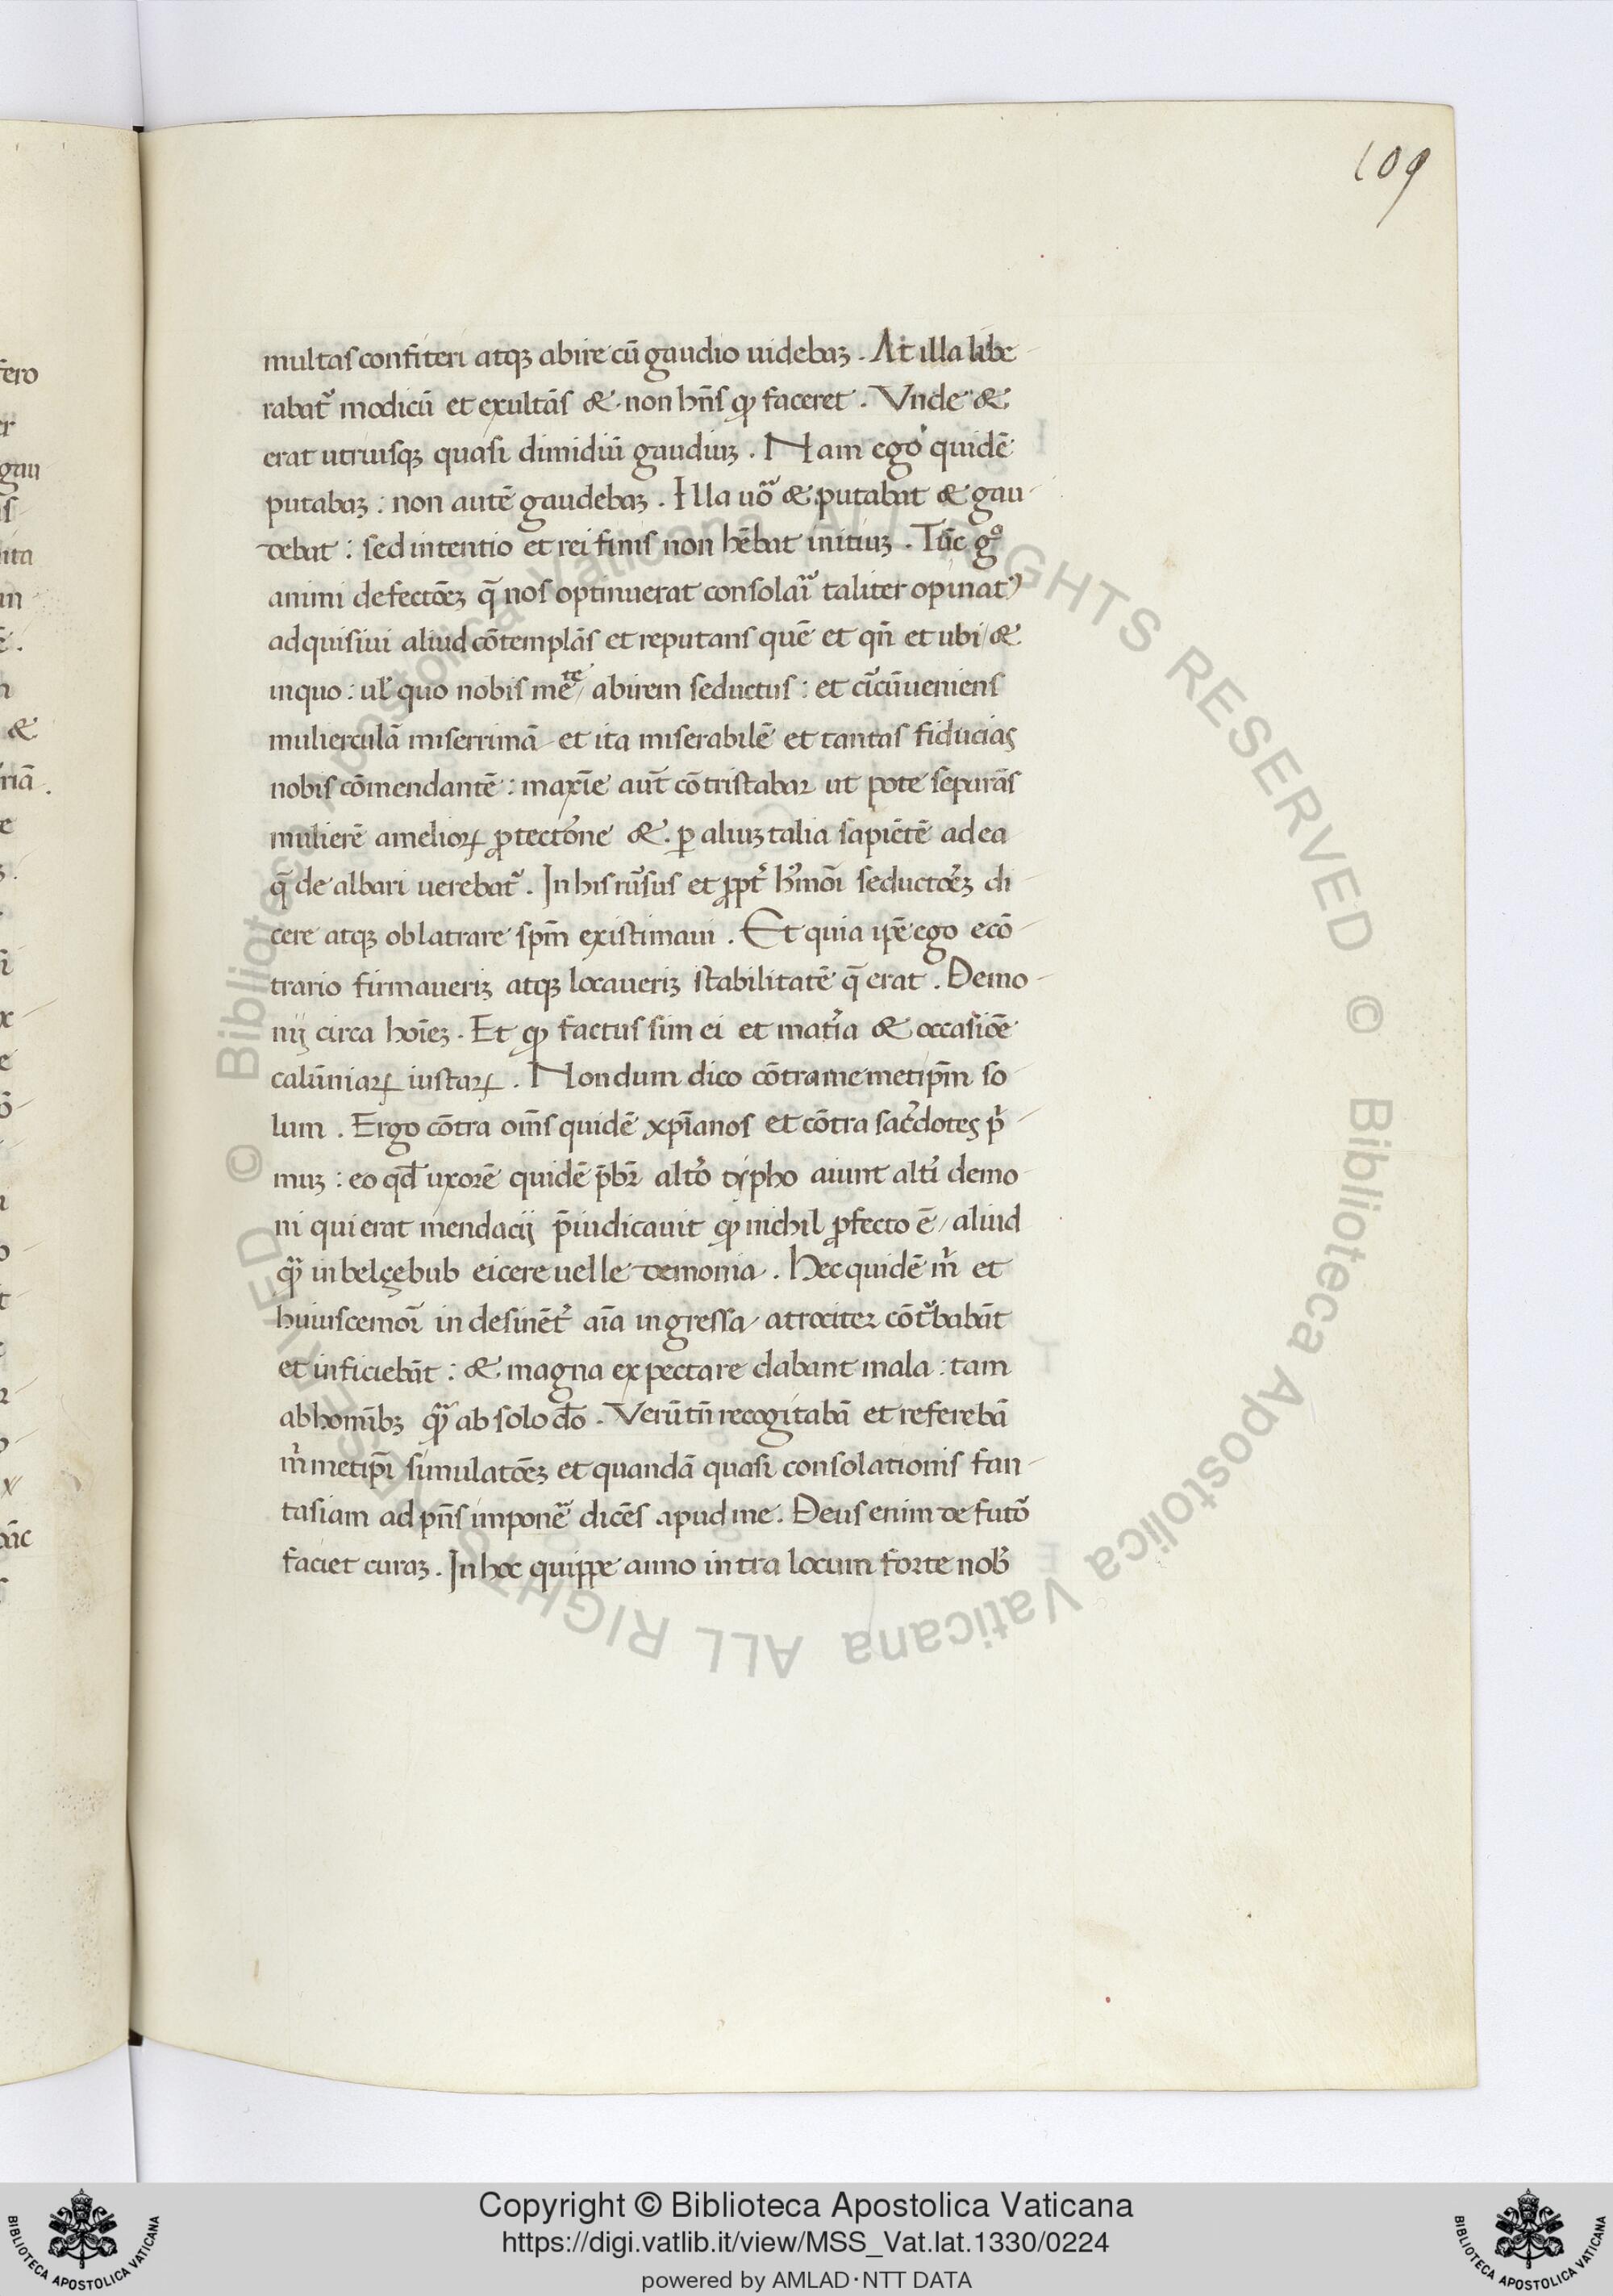 109
multas confiteri atqꝫ abire cū gaudio uidebaꝫ. At illa libe
rabat᷑ modicū et exultās & non hn̄s ꝙ faceret. Vnde &
erat utriusqꝫ quasi dimidiū gaudiuꝫ. Nam ego quidē
putabaꝫ: non autē gaudebaꝫ. Illa uoᷓ & putabat & gau
debat: sed intentio et rei finis non hēbat initiuꝫ. Tūc gͦ
animi defectōeꝫ q̄ nos optinuerat consolai᷑ taliter opinatꝰ
adquisiui aliud cōtemplās et reputans quē et qn̄ et ubi / &
inquo: ul̓ quo nobis mēte / abirem seductus: et cūcūueniens
mulierculā miserrimā et ita miserabilē et tantas fiducias
nobis cōmendantē: maxīe aut̄ cōtristabar ut pote separās
mulierē ameliorꝝ ꝓtectōne & ꝑ aliuꝫ talia sapiētē ad ea
q̄ de albari uerebat᷑. In his rūsus et ꝓpt̓ hꝰmōi seductōeꝫ di
cere atqꝫ oblatrare spm̄ existimaui. Et quia ip̄e ego ecō
trario firmaueriꝫ atqꝫ locaueriꝫ stabilitatē q̄ erat. Demo
nij circa hoīeꝫ. Et ꝙ factus sim ei et mat̓ia & occasiōe
calūniarꝝ iustarꝝ. Nondum dico cōtra memetip̄m so
lum. Ergo cōtra om̄s quidē xp̄ianos et cōtra sac̓dotes p̓
muꝫ: eo qd̄ uxorē quidē p̄br̄ alt̓o typho aiunt alt̓i demo
ni qui erat mendacij p̄iudicauit ꝙ nichil ꝓfecto ē / aliud
qᷓ in belçebub eicere uelle demonia. Hec quidē m̓ et
huiuscemōi in desinēt᷑ aīa ingressa atrociter cōt᷑babāt
et inficiebāt: & magna expectare dabant mala: tam
ab homībꝫ qᷓ ab solo dō. Verūtn̄ recogitabā et referebā
m̓ metip̄i simulatōeꝫ et quandā quasi consolationis fan
tasiam ad pn̄s imponē᷑ dicēs apud me. Deus enim de futō
faciet curaꝫ. In hoc quippe anno intra locum forte nob̓
Copyright © Biblioteca Apostolica Vaticana
https://digi.vatlib.it/view/MSS_Vat.lat.1330/0224
powered by AMLAD·NTT DATA